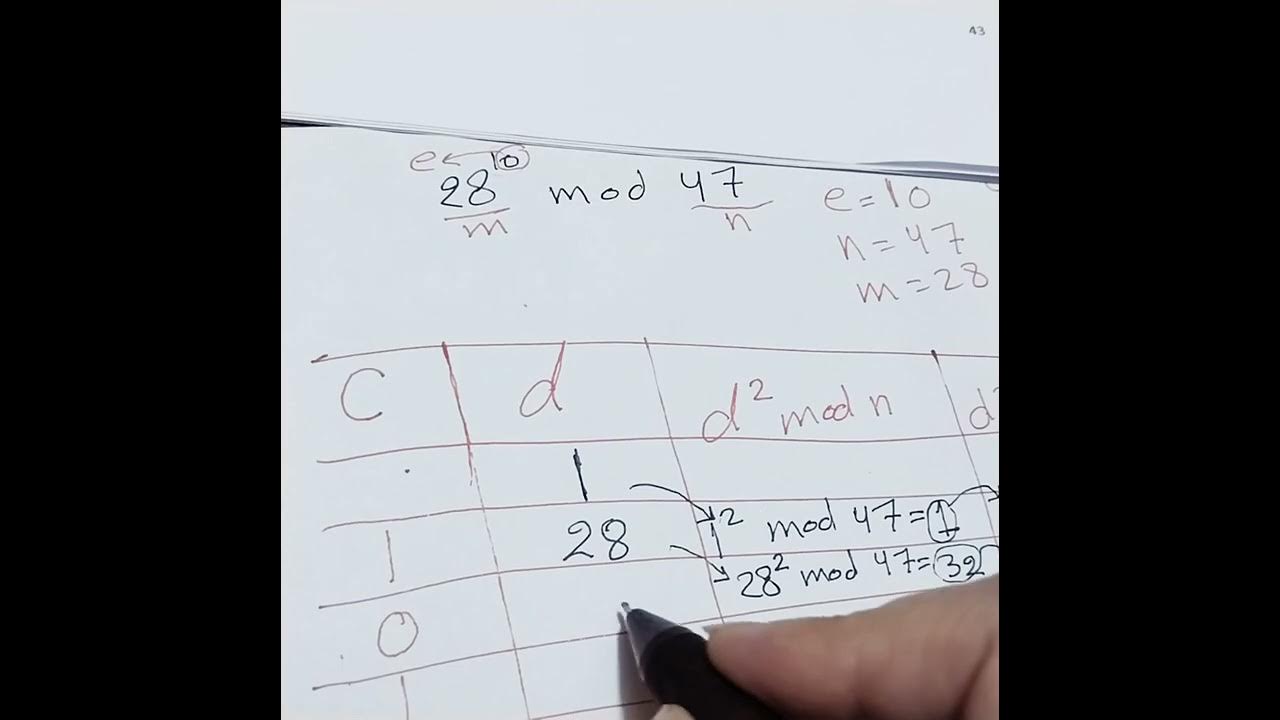 43
e ← 10
28 mod 47
m n
e = 10
n = 47
m = 28
C d d² mod n d²
1
1 28 1² mod 47 = 1
0 28² mod 47 = 32
1